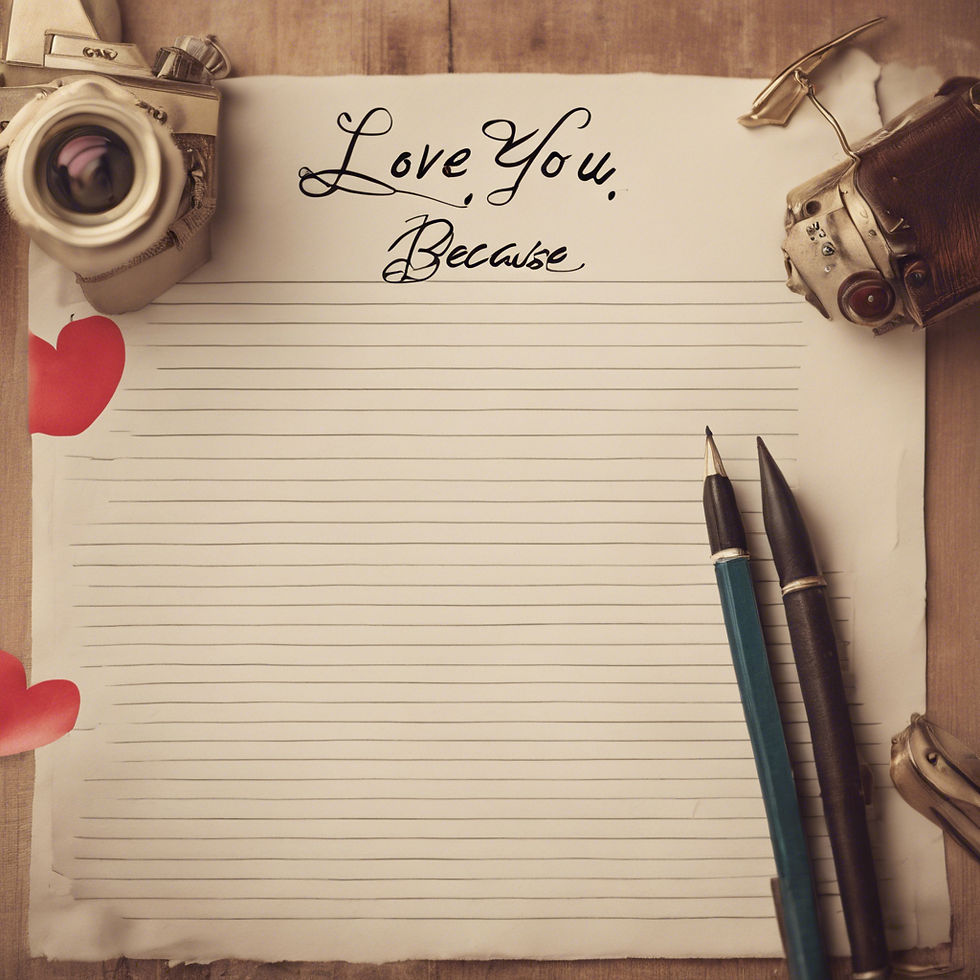 Love. You.
Because